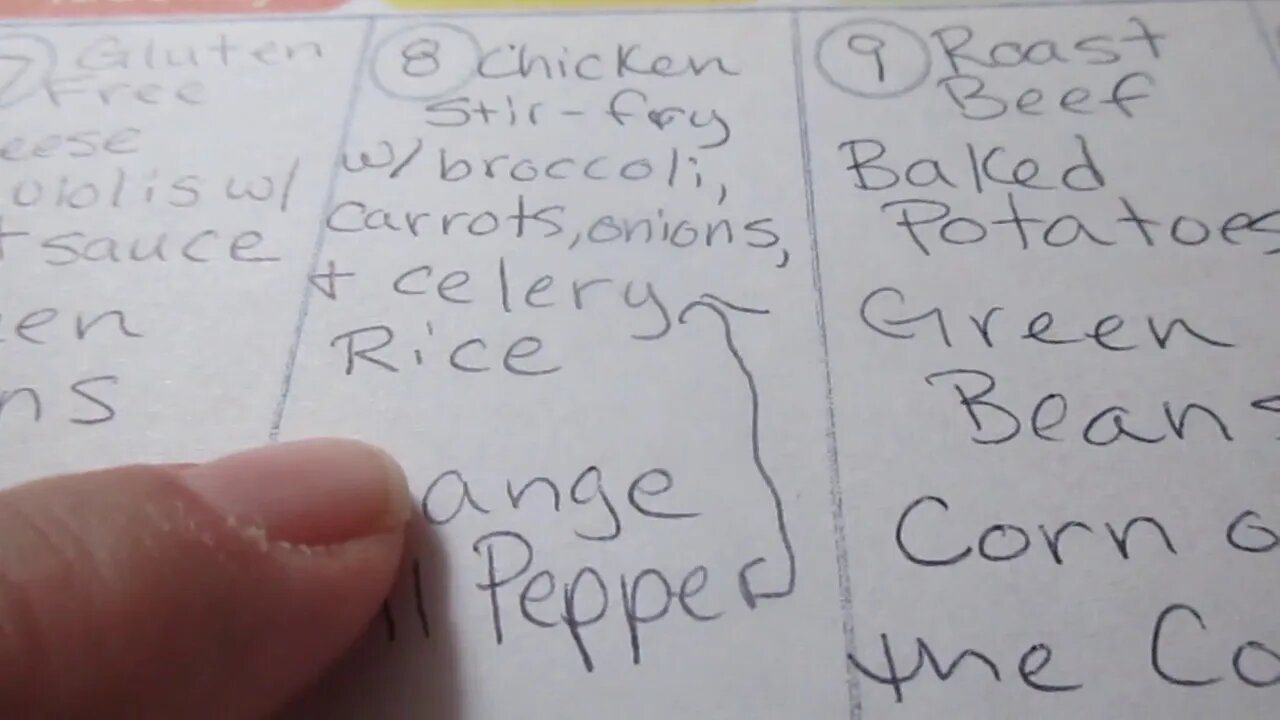 7 Gluten
Free
eese
violis w/
sauce
en
ns
8 Chicken
Stir-fry
w/ broccoli,
carrots, onions,
+ celery
Rice
ange
ll Pepper
9 Roast
Beef
Baked
Potatoes
Green
Beans
Corn o
the Co